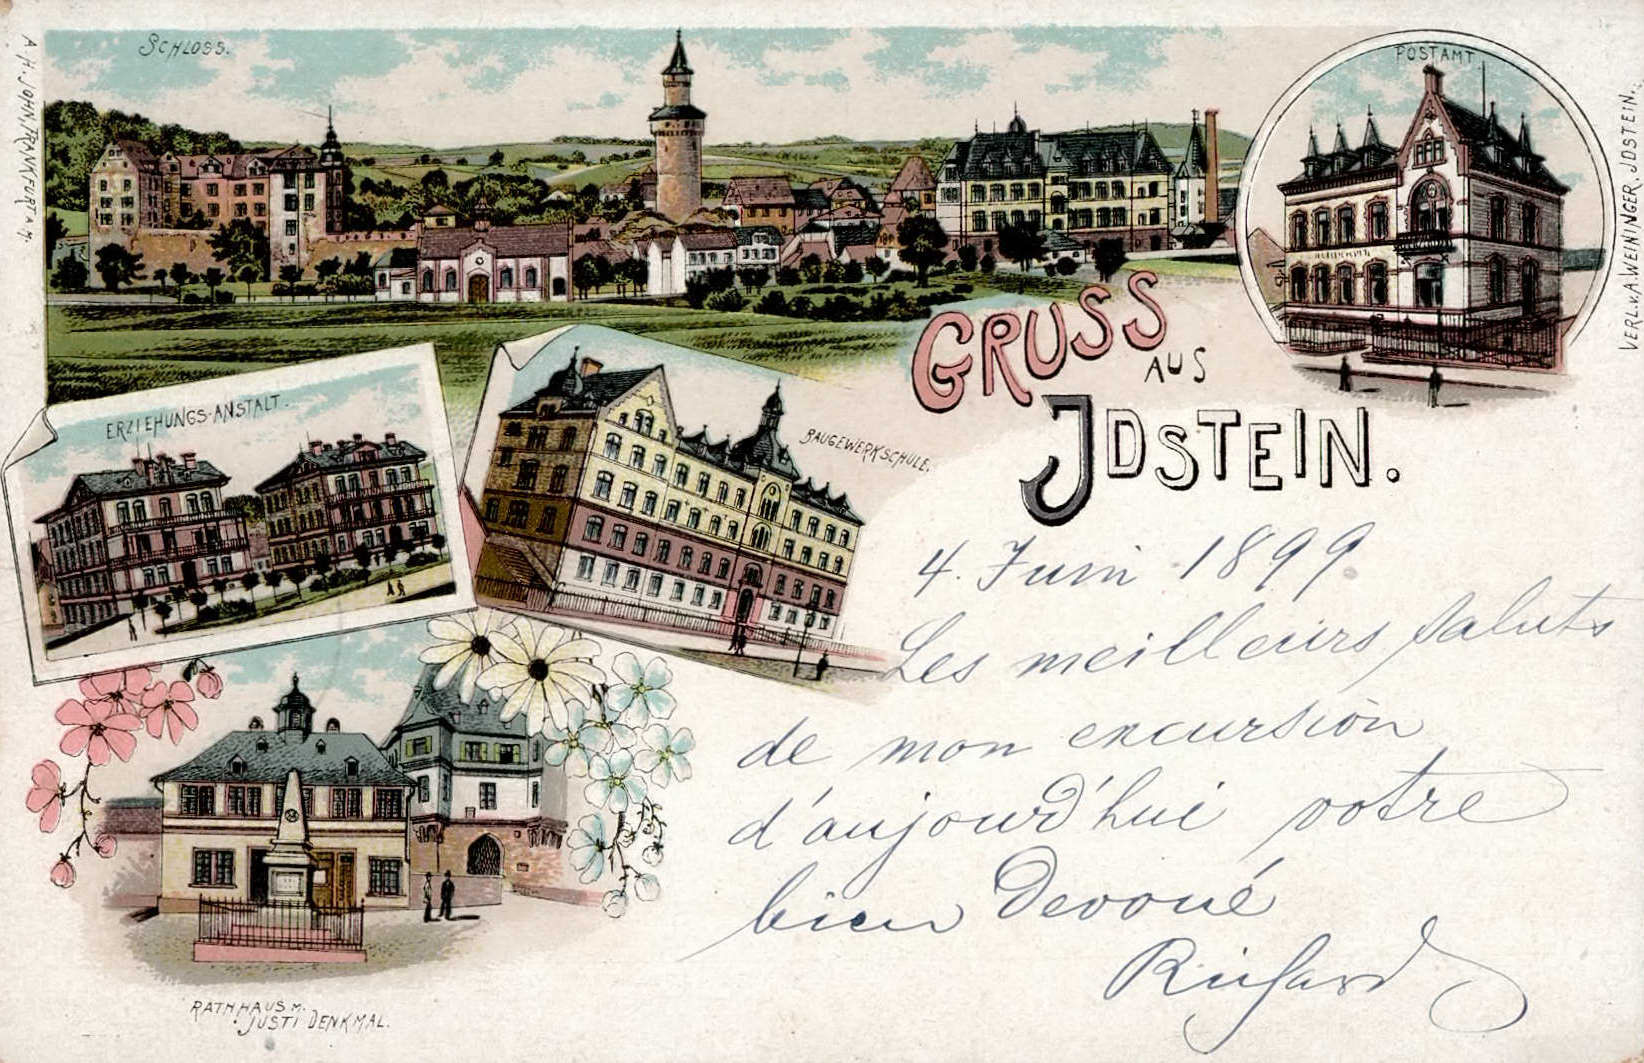 SCHLOSS.
POSTAMT
A. H. JOHN, FRANKFURT A M.
VERL. V. A. WEININGER, JDSTEIN.
GRUSS
AUS
JDSTEIN.
ERZIEHUNGS-ANSTALT.
BAUGEWERKSCHULE.
4. Juin 1899
Les meilleurs saluts
de mon excursion
d'aujourd'hui votre
bien devoué
Richard
RATHHAUS M.
JUSTI DENKMAL.